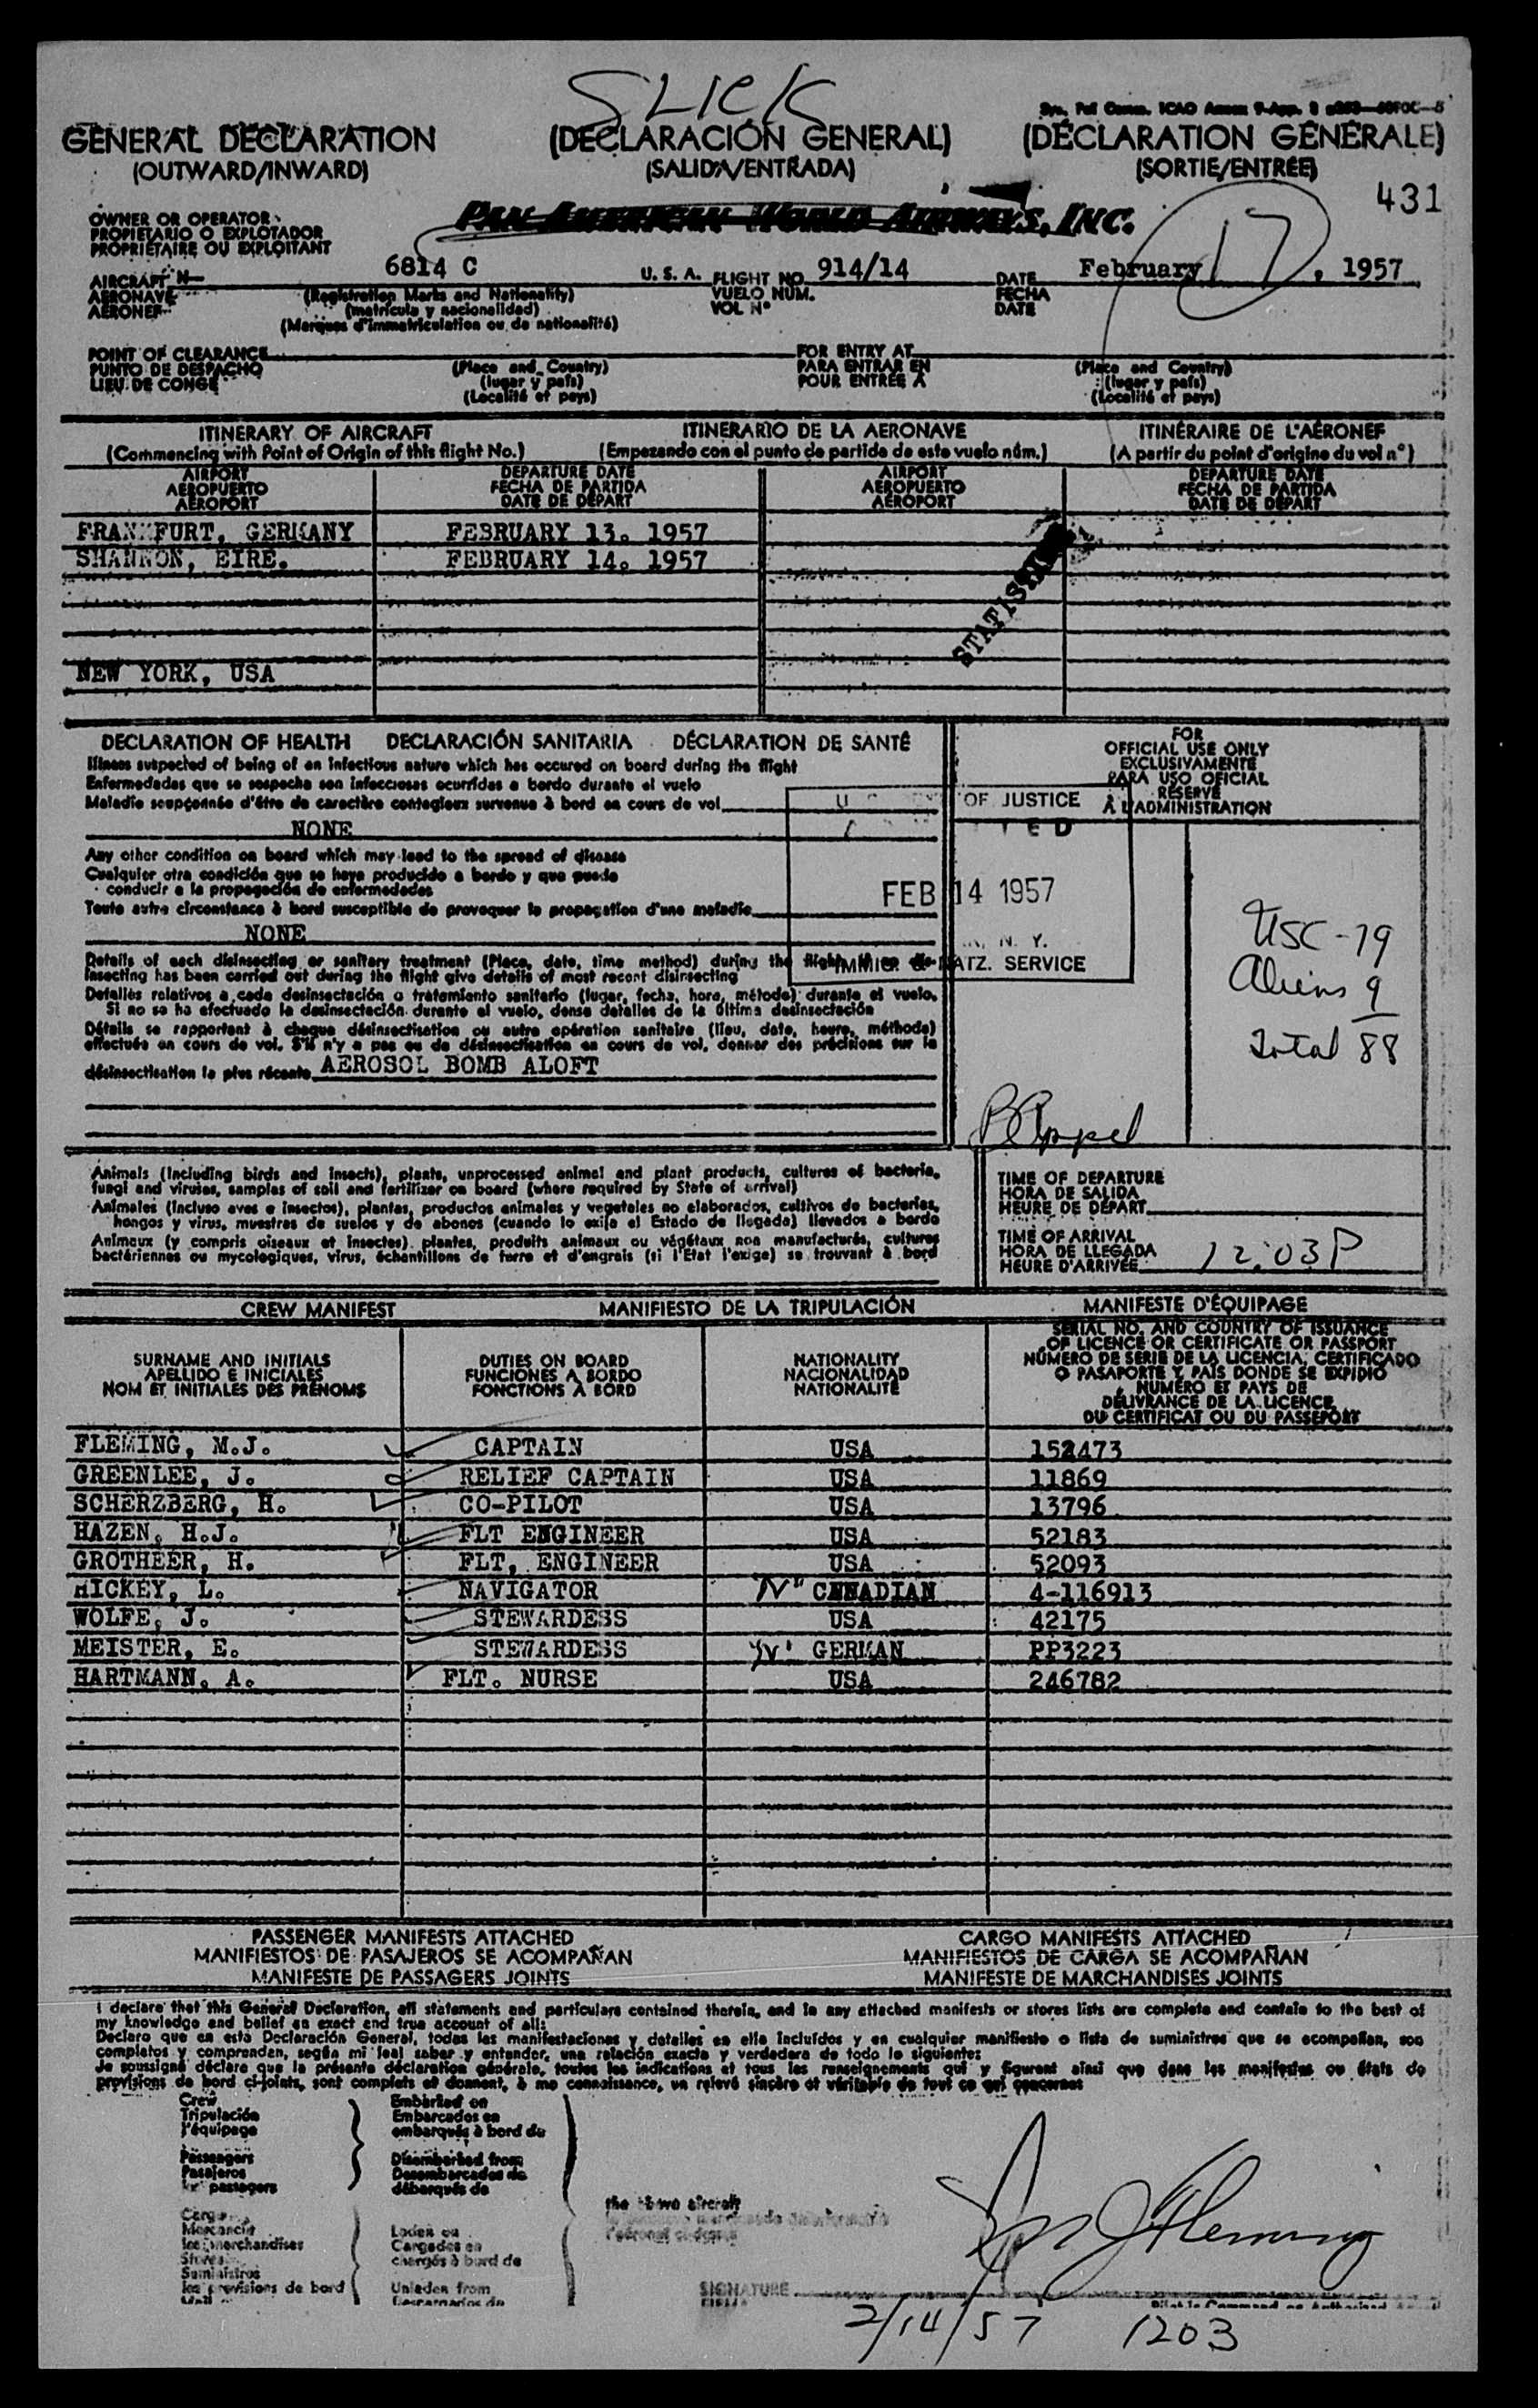 SLICK
GENERAL DECLARATION (DECLARACIÓN GENERAL) (DÉCLARATION GÉNÉRALE)
(OUTWARD/INWARD) (SALIDA/ENTRADA) (SORTIE/ENTRÉE)
431
OWNER OR OPERATOR
PROPIETARIO O EXPLOTADOR
PROPRIÉTAIRE OU EXPLOITANT
PAN AMERICAN WORLD AIRWAYS, INC.
17
AIRCRAFT N 6814 C U. S. A. FLIGHT NO. 914/14 DATE February , 1957
AERONAVE (Registration Marks and Nationality) VUELO NÚM. FECHA
AÉRONEF (matrícula y nacionalidad) VOL N° DATE
(Marques d'immatriculation ou de nationalité)
POINT OF CLEARANCE FOR ENTRY AT
PUNTO DE DESPACHO (Place and Country) PARA ENTRAR EN (Place and Country)
LIEU DE CONGÉ (lugar y país) POUR ENTRÉE À (lugar y país)
(Localité et pays) (Localité et pays)
ITINERARY OF AIRCRAFT ITINERARIO DE LA AERONAVE ITINÉRAIRE DE L'AÉRONEF
(Commencing with Point of Origin of this flight No.) (Empezando con el punto de partida de este vuelo núm.) (A partir du point d'origine du vol n°)
AIRPORT DEPARTURE DATE AIRPORT DEPARTURE DATE
AEROPUERTO FECHA DE PARTIDA AEROPUERTO FECHA DE PARTIDA
AÉROPORT DATE DE DÉPART AÉROPORT DATE DE DÉPART
FRANKFURT, GERMANY FEBRUARY 13. 1957
SHANNON, EIRE. FEBRUARY 14. 1957
NEW YORK, USA
DECLARATION OF HEALTH DECLARACIÓN SANITARIA DÉCLARATION DE SANTÉ
Illness suspected of being of an infectious nature which has occured on board during the flight
Enfermedades que se sospecha son infecciosas ocurridas a bordo durante el vuelo
Maladie soupçonnée d'être de caractère contagieux survenue à bord en cours de vol
NONE
Any other condition on board which may lead to the spread of disease
Cualquier otra condición que se haya producido a bordo y que puede
conducir a la propagación de enfermedades
Toute autre circonstance à bord susceptible de provoquer la propagation d'une maladie
NONE
Details of each disinsecting or sanitary treatment (Place, date, time method) during the flight.
insecting has been carried out during the flight give details of most recent disinsecting
Detalles relativos a cada desinsectación o tratamiento sanitario (lugar, fecha, hora, método) durante el vuelo.
Si no se ha efectuado la desinsectación durante el vuelo, dense detalles de la última desinsectación
Détails se rapportant à chaque désinsectisation ou autre opération sanitaire (lieu, date, heure, méthode)
effectuée en cours de vol. S'il n'y a pas eu de désinsectisation en cours de vol, donner des précisions sur la
désinsectisation la plus récente AEROSOL BOMB ALOFT
FOR
OFFICIAL USE ONLY
EXCLUSIVAMENTE
PARA USO OFICIAL
RÉSERVÉ
À L'ADMINISTRATION
OF JUSTICE
FEB 14 1957
N. Y.
IMMIG. & NATZ. SERVICE
USC-79
Aliens 9
Total 88
Animals (including birds and insects), plants, unprocessed animal and plant products, cultures of bacteria,
fungi and viruses, samples of soil and fertilizer on board (where required by State of arrival)
Animales (incluso aves e insectos), plantas, productos animales y vegetales no elaborados, cultivos de bacterias,
hongos y virus, muestras de suelos y de abonos (cuando lo exija el Estado de llegada) llevados a bordo
Animaux (y compris oiseaux et insectes) plantes, produits animaux ou végétaux non manufacturés, cultures
bactériennes ou mycologiques, virus, échantillons de terre et d'engrais (si l'État l'exige) se trouvant à bord
TIME OF DEPARTURE
HORA DE SALIDA
HEURE DE DÉPART
TIME OF ARRIVAL
HORA DE LLEGADA
HEURE D'ARRIVÉE 12:03P
CREW MANIFEST MANIFIESTO DE LA TRIPULACIÓN MANIFESTE D'ÉQUIPAGE
SURNAME AND INITIALS DUTIES ON BOARD NATIONALITY
APELLIDO E INICIALES FUNCIONES A BORDO NACIONALIDAD
NOM ET INITIALES DES PRÉNOMS FONCTIONS À BORD NATIONALITÉ
SERIAL NO. AND COUNTRY OF ISSUANCE
OF LICENCE OR CERTIFICATE OR PASSPORT
NÚMERO DE SERIE DE LA LICENCIA, CERTIFICADO
O PASAPORTE Y PAÍS DONDE SE EXPIDIÓ
NUMÉRO ET PAYS DE
DÉLIVRANCE DE LA LICENCE
DU CERTIFICAT OU DU PASSEPORT
FLEMING, M.J. CAPTAIN USA 152473
GREENLEE, J. RELIEF CAPTAIN USA 11869
SCHERZBERG, H. CO-PILOT USA 13796
HAZEN, H.J. FLT ENGINEER USA 52183
GROTHEER, H. FLT, ENGINEER USA 52093
HICKEY, L. NAVIGATOR CANADIAN 4-116913
WOLFE, J. STEWARDESS USA 42175
MEISTER, E. STEWARDESS GERMAN PP3223
HARTMANN. A. FLT. NURSE USA 246782
PASSENGER MANIFESTS ATTACHED CARGO MANIFESTS ATTACHED
MANIFIESTOS DE PASAJEROS SE ACOMPAÑAN MANIFIESTOS DE CARGA SE ACOMPAÑAN
MANIFESTE DE PASSAGERS JOINTS MANIFESTE DE MARCHANDISES JOINTS
I declare that this General Declaration, all statements and particulars contained therein, and in any attached manifests or stores lists are complete and contain to the best of
my knowledge and belief an exact end true account of all:
Declaro que en esta Declaración General, todas las manifestaciones y detalles en ella incluídos y en cualquier manifiesto o lista de suministros que se acompañan, son
completos y comprenden, según mi leal saber y entender, una relación exacta y verdadera de todo lo siguiente:
Je soussigné déclare que la présente déclaration générale, toutes les indications et tous les renseignements qui y figurent ainsi que dans les manifestes ou états de
provisions de bord ci-joints, sont complets et donnent, à ma connaissance, un relevé sincère et véritable de tout ce qui concerne:
Crew Embarked on
Tripulación Embarcados en
l'équipage embarqués à bord de
Passengers Disembarked from
Pasajeros Desembarcados de
passagers débarqués de
the above aircraft
Cargo
Mercancía Laden on
les merchandises Cargados en
Stores chargés à bord de
Suministros
les provisions de bord Unladen from
M J Fleming
SIGNATURE
2/14/57 1203